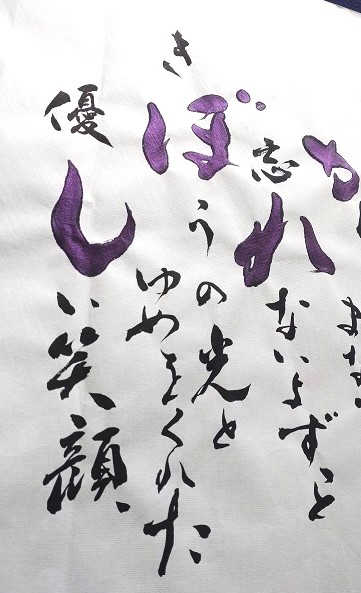 忘れないよずっと
きぼうの光と
ゆめをくれた
優しい笑顔